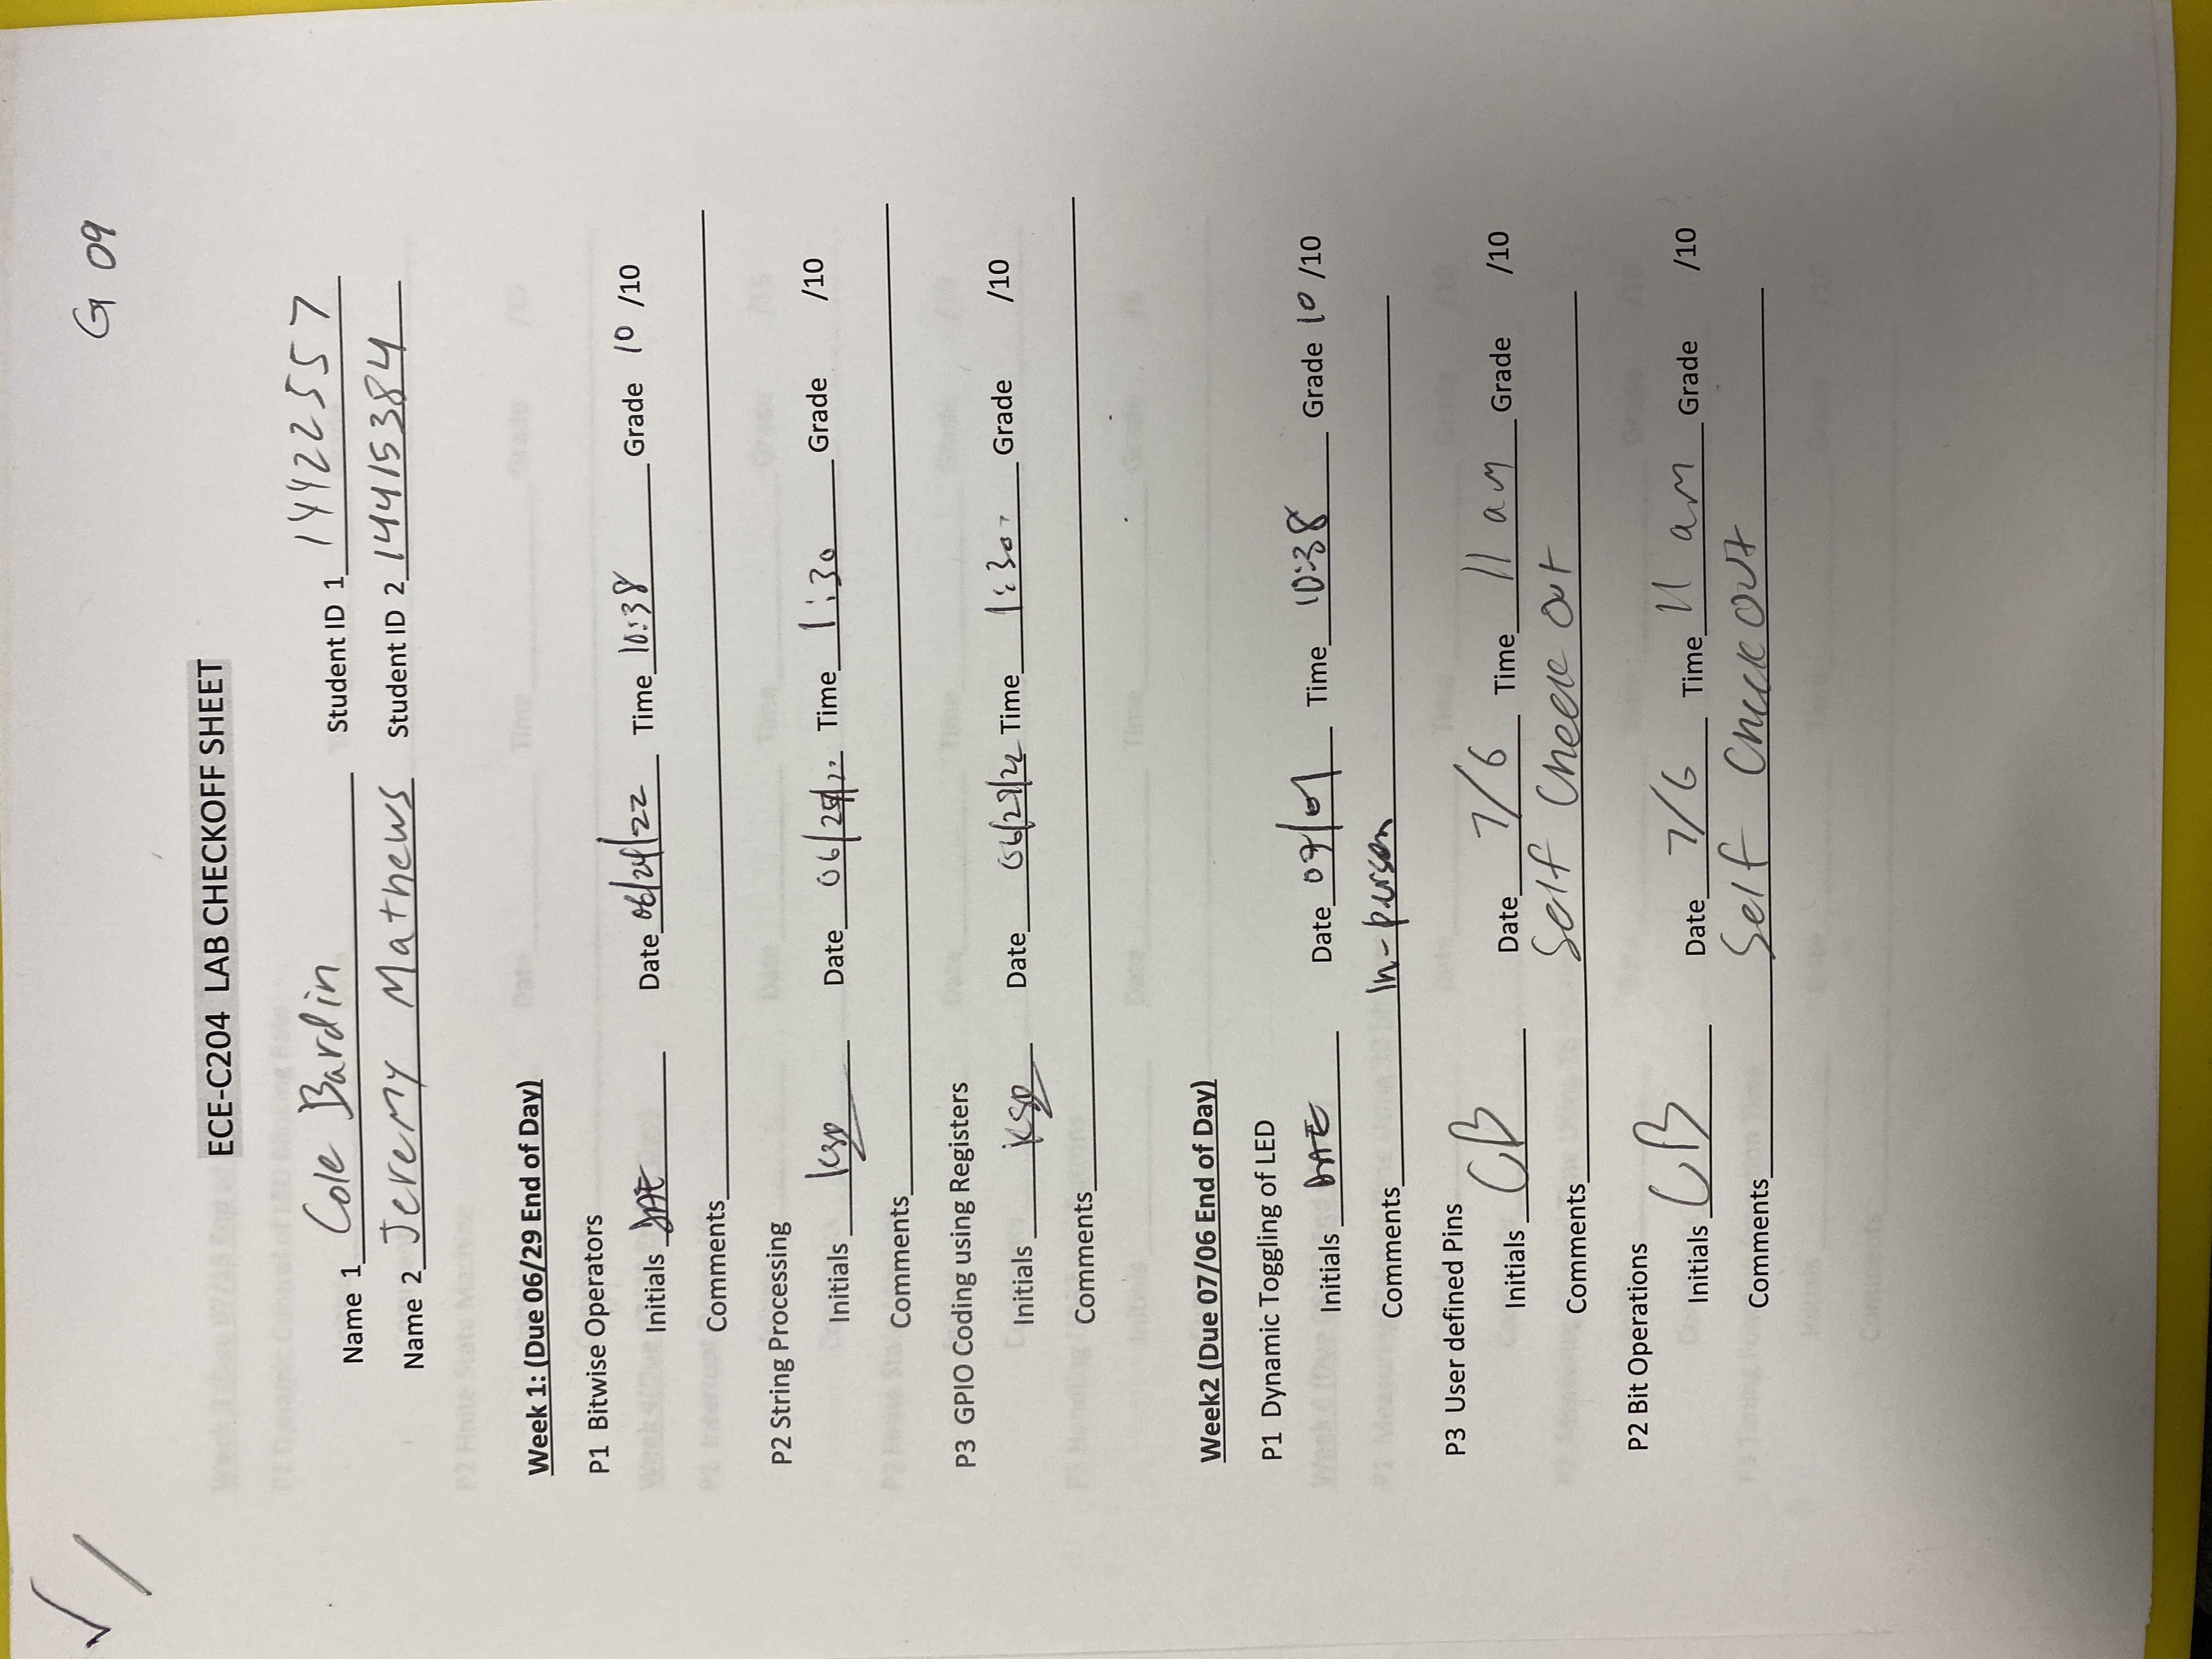 G 09
ECE-C204 LAB CHECKOFF SHEET
Name 1 Cole Bardin Student ID 1 14422557
Name 2 Jeremy Mathews Student ID 2 14415384
Week 1: (Due 06/29 End of Day)
P1 Bitwise Operators
Initials DAE Date 06/24/22 Time 10:38 Grade 10 /10
Comments
P2 String Processing
Initials KSP Date Time 1:30 Grade /10
Comments
P3 GPIO Coding using Registers
Initials KSP Date 06/27/22 Time 1:30 Grade /10
Comments
Week2 (Due 07/06 End of Day)
P1 Dynamic Toggling of LED
Initials DAE Date 07/01 Time 10:38 Grade 10 /10
Comments In-person
P3 User defined Pins
Initials CB Date 7/6 Time 11 am Grade /10
Comments Self Check Out
P2 Bit Operations
Initials CB Date 7/6 Time 11 am Grade /10
Comments Self Check Out